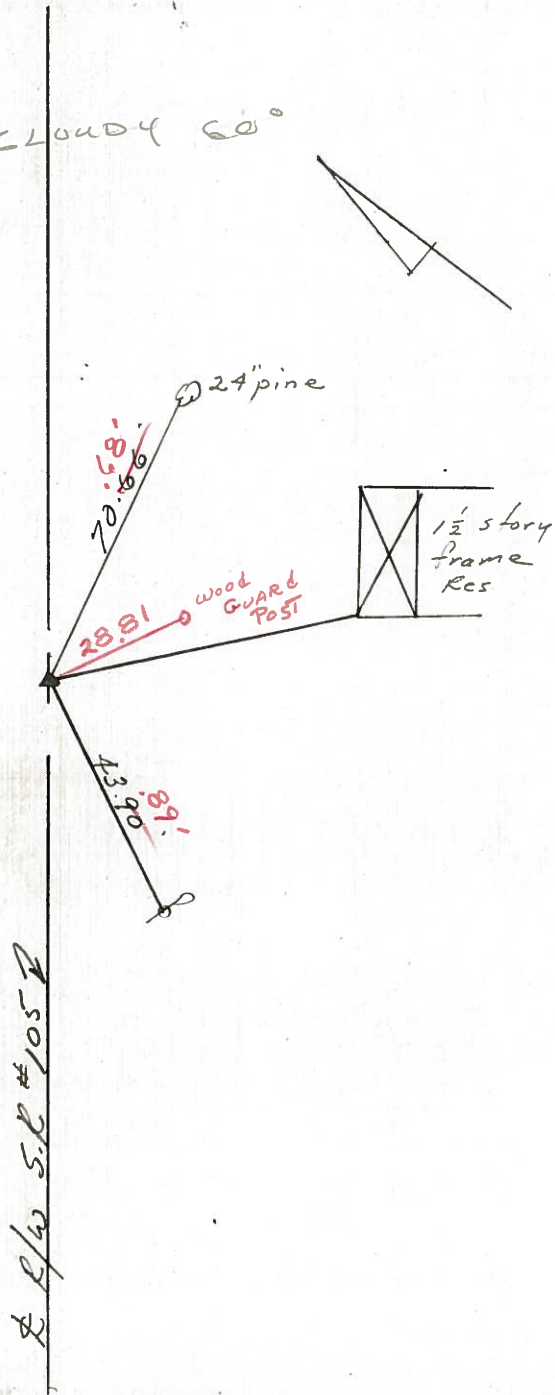 CLOUDY 60°
24" pine
.68'
70.66
1½ story
frame
Res
wood
GUARd
POST
28.81
43.90
.89'
℄ R/W S.R #105